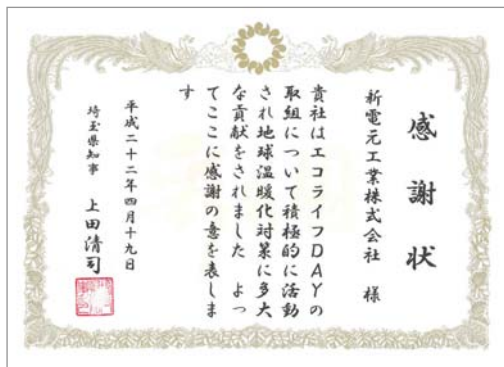 感謝状
新電元工業株式会社 様
貴社はエコライフDAYの
取組について積極的に活動
され地球温暖化対策に多大
な貢献をされました よっ
てここに感謝の意を表しま
す
平成二十二年四月十九日
埼玉県知事 上田清司